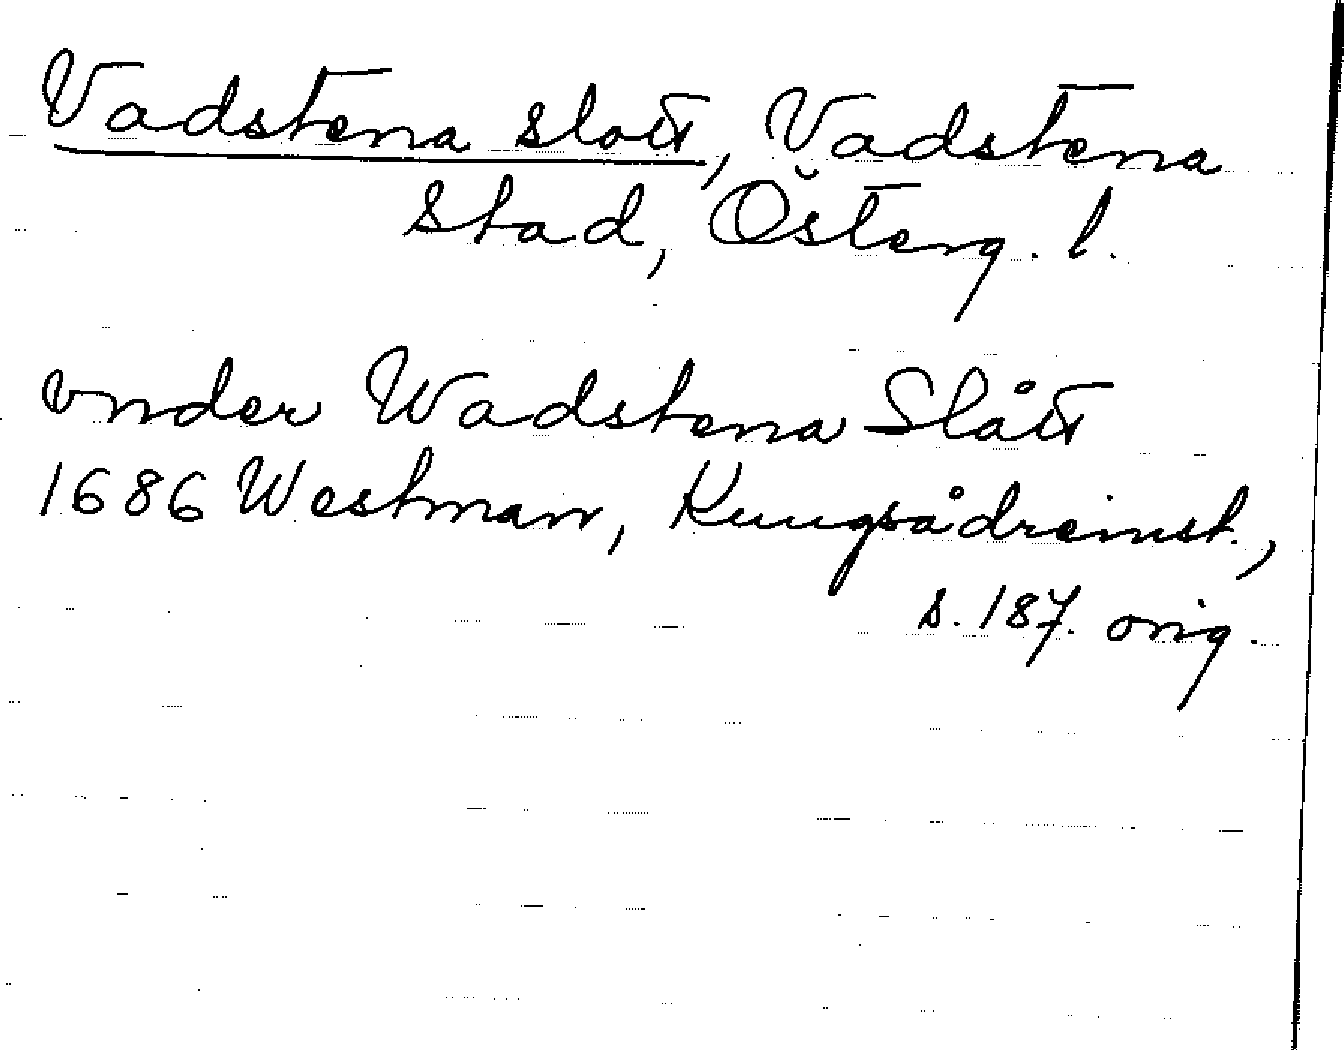 Vadstena slott, Vadstena
stad, Österg. l.
vnder Wadstena Slått
1686 Westman, Kungsådreinst.,
s. 187. orig.